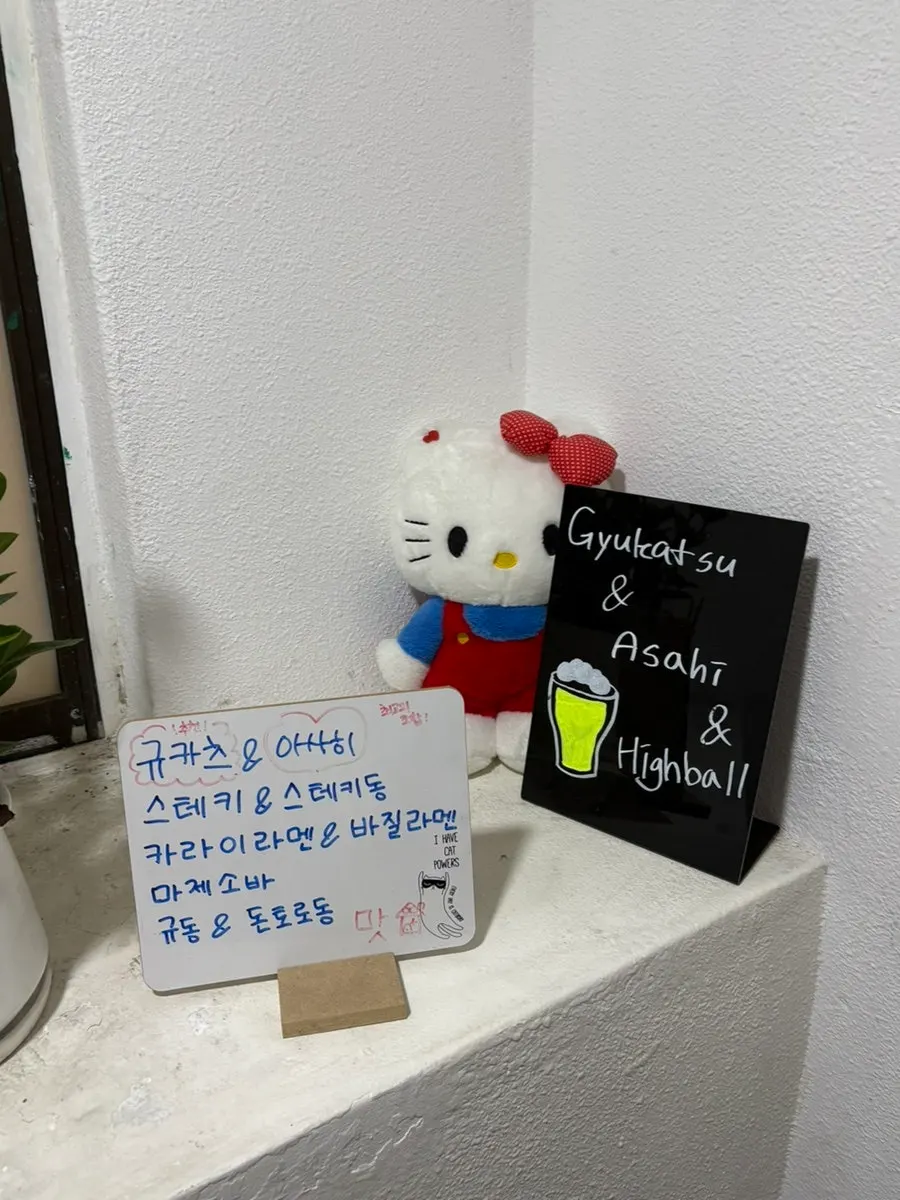 추천!
최고의
조합!
규카츠 & 아사히
스테키 & 스테키동
카라이라멘 & 바질라멘
마제소바
규동 & 돈토로동
맛
I HAVE
CAT
POWERS
Gyukatsu
&
Asahi
&
Highball